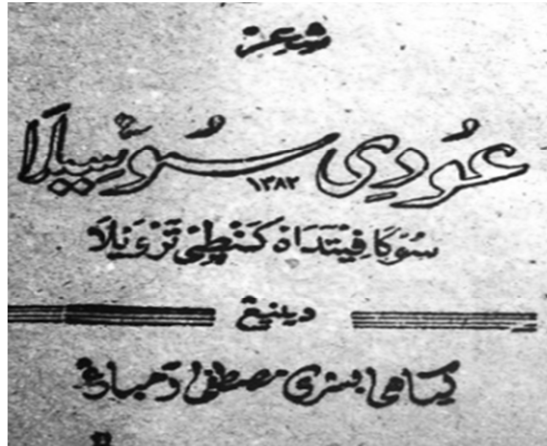 شعر
عُودِى سُوسِيلَا
١٣٨٢
سَوكَا فِيتَدَاه كَنْطِى تَرْوَيلَا
دينيڠ
كياهى بسرى مصطفى رمباڠ